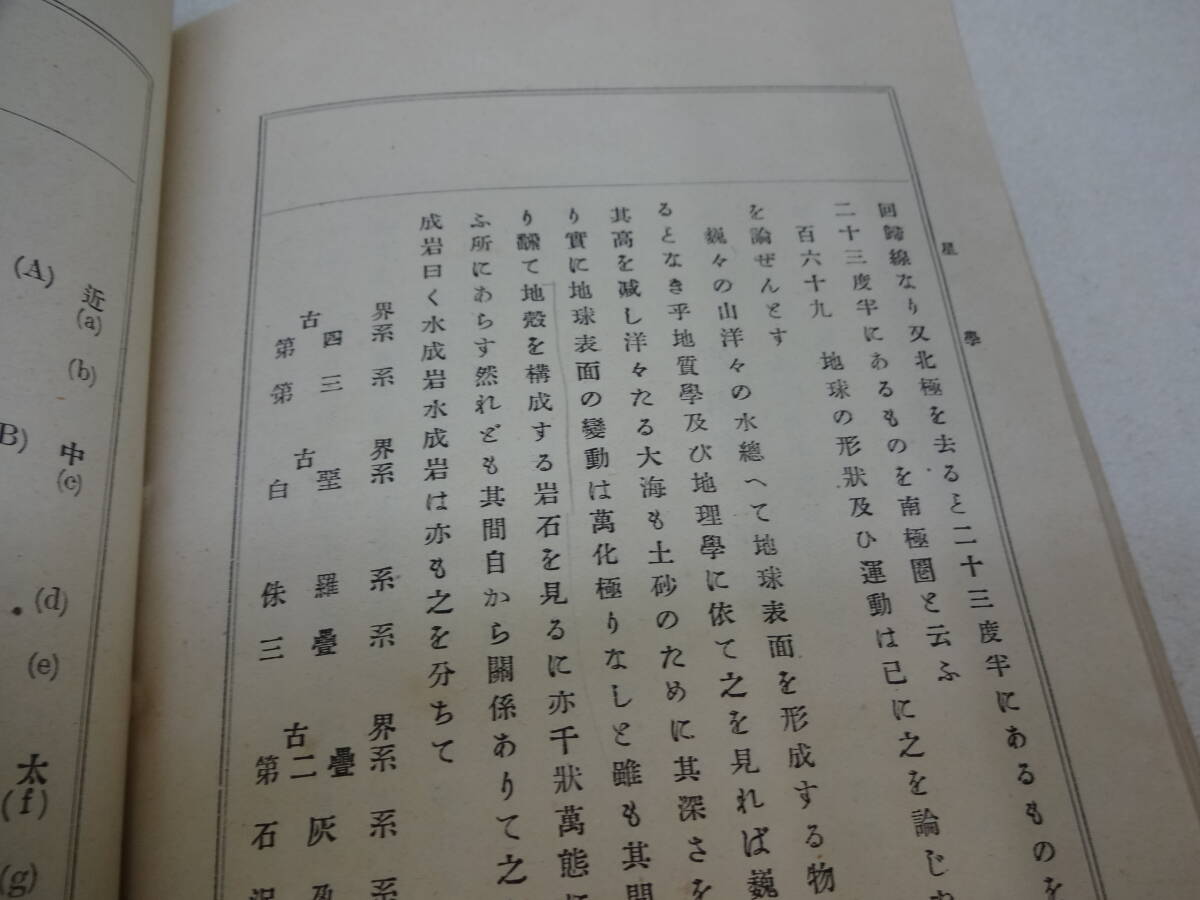 星學
回歸線なり又北極を去ると二十三度半にあるものを
二十三度半にあるものを南極圈と云ふ
百六十九 地球の形狀及ひ運動は已に之を論じ
を論ぜんとす
巍々の山洋々の水總へて地球表面を形成する物
るとなき乎地質學及び地理學に依て之を見れば巍
其高を减し洋々たる大海も土砂のために其深さを
り實に地球表面の變動は萬化極りなしと雖も其間
り飜て地殼を構成する岩石を見るに亦千狀萬態
ふ所にあらす然れども其間自から關係ありて之
成岩曰く水成岩水成岩は亦も之を分ちて
近古界
(A)
(a) 第四系
(b) 第三系
中古界
(B)
(c) 白堊系
(d) 侏羅系
(e) 三疊系
太古界
(f) 第二疊系
(g) 石灰系
泥盈系